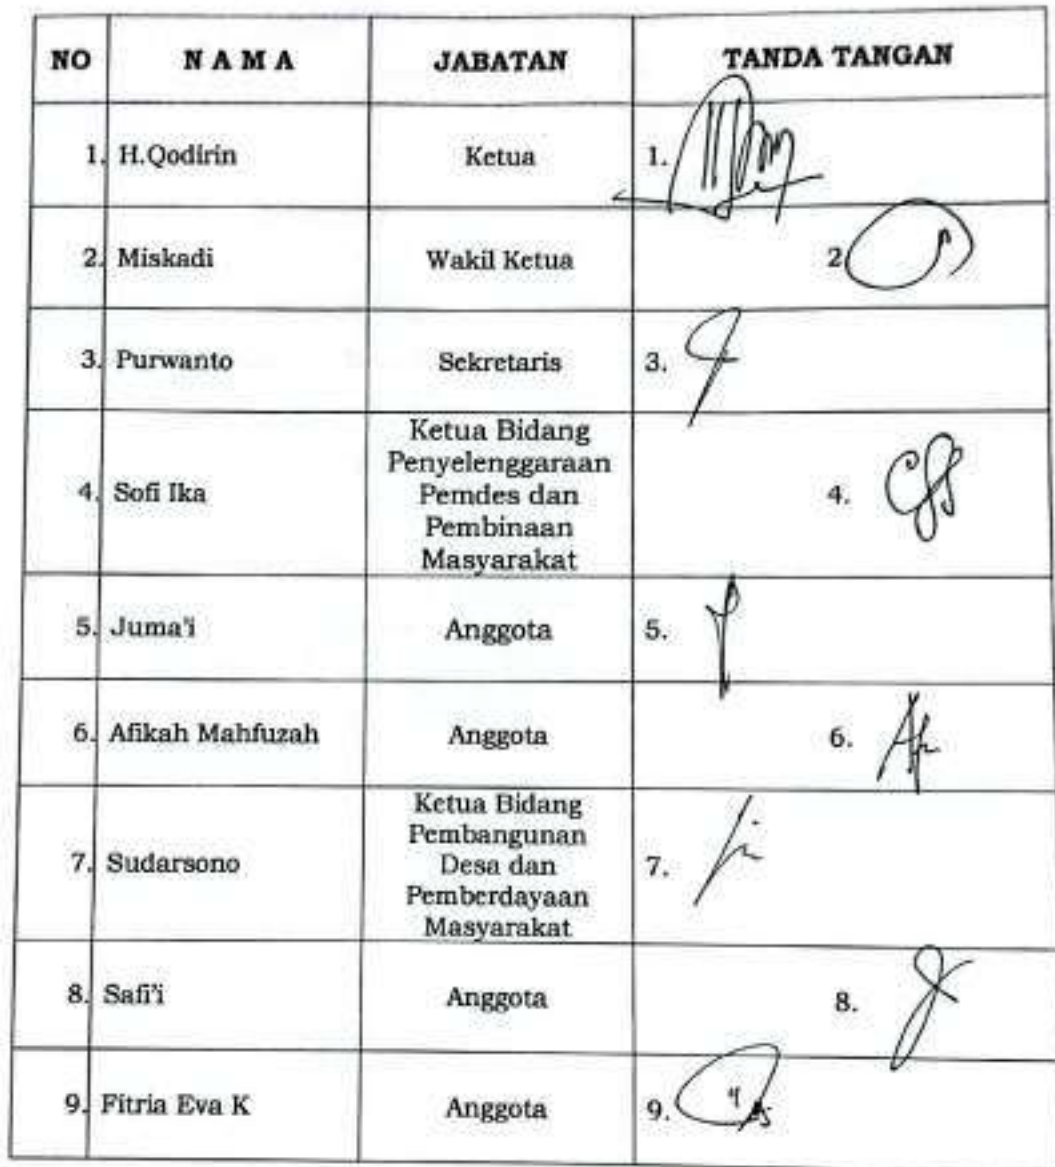 NO N A M A JABATAN TANDA TANGAN
1. H.Qodirin Ketua 1.
2. Miskadi Wakil Ketua 2
3. Purwanto Sekretaris 3.
4. Sofi Ika Ketua Bidang
Penyelenggaraan
Pemdes dan
Pembinaan
Masyarakat 4.
5. Juma'i Anggota 5.
6. Afikah Mahfuzah Anggota 6.
7. Sudarsono Ketua Bidang
Pembangunan
Desa dan
Pemberdayaan
Masyarakat 7.
8. Safi'i Anggota 8.
9. Fitria Eva K Anggota 9.